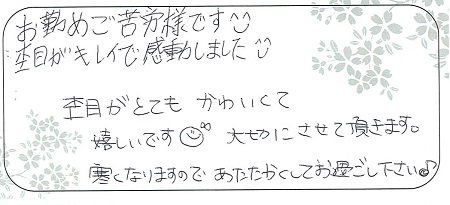 お勤めご苦労様です
杢目がキレイで感動しました
杢目がとても かわいくて
嬉しいです 大切にさせて頂きます。
寒くなりますので あたたかくしてお過ごし下さい♪